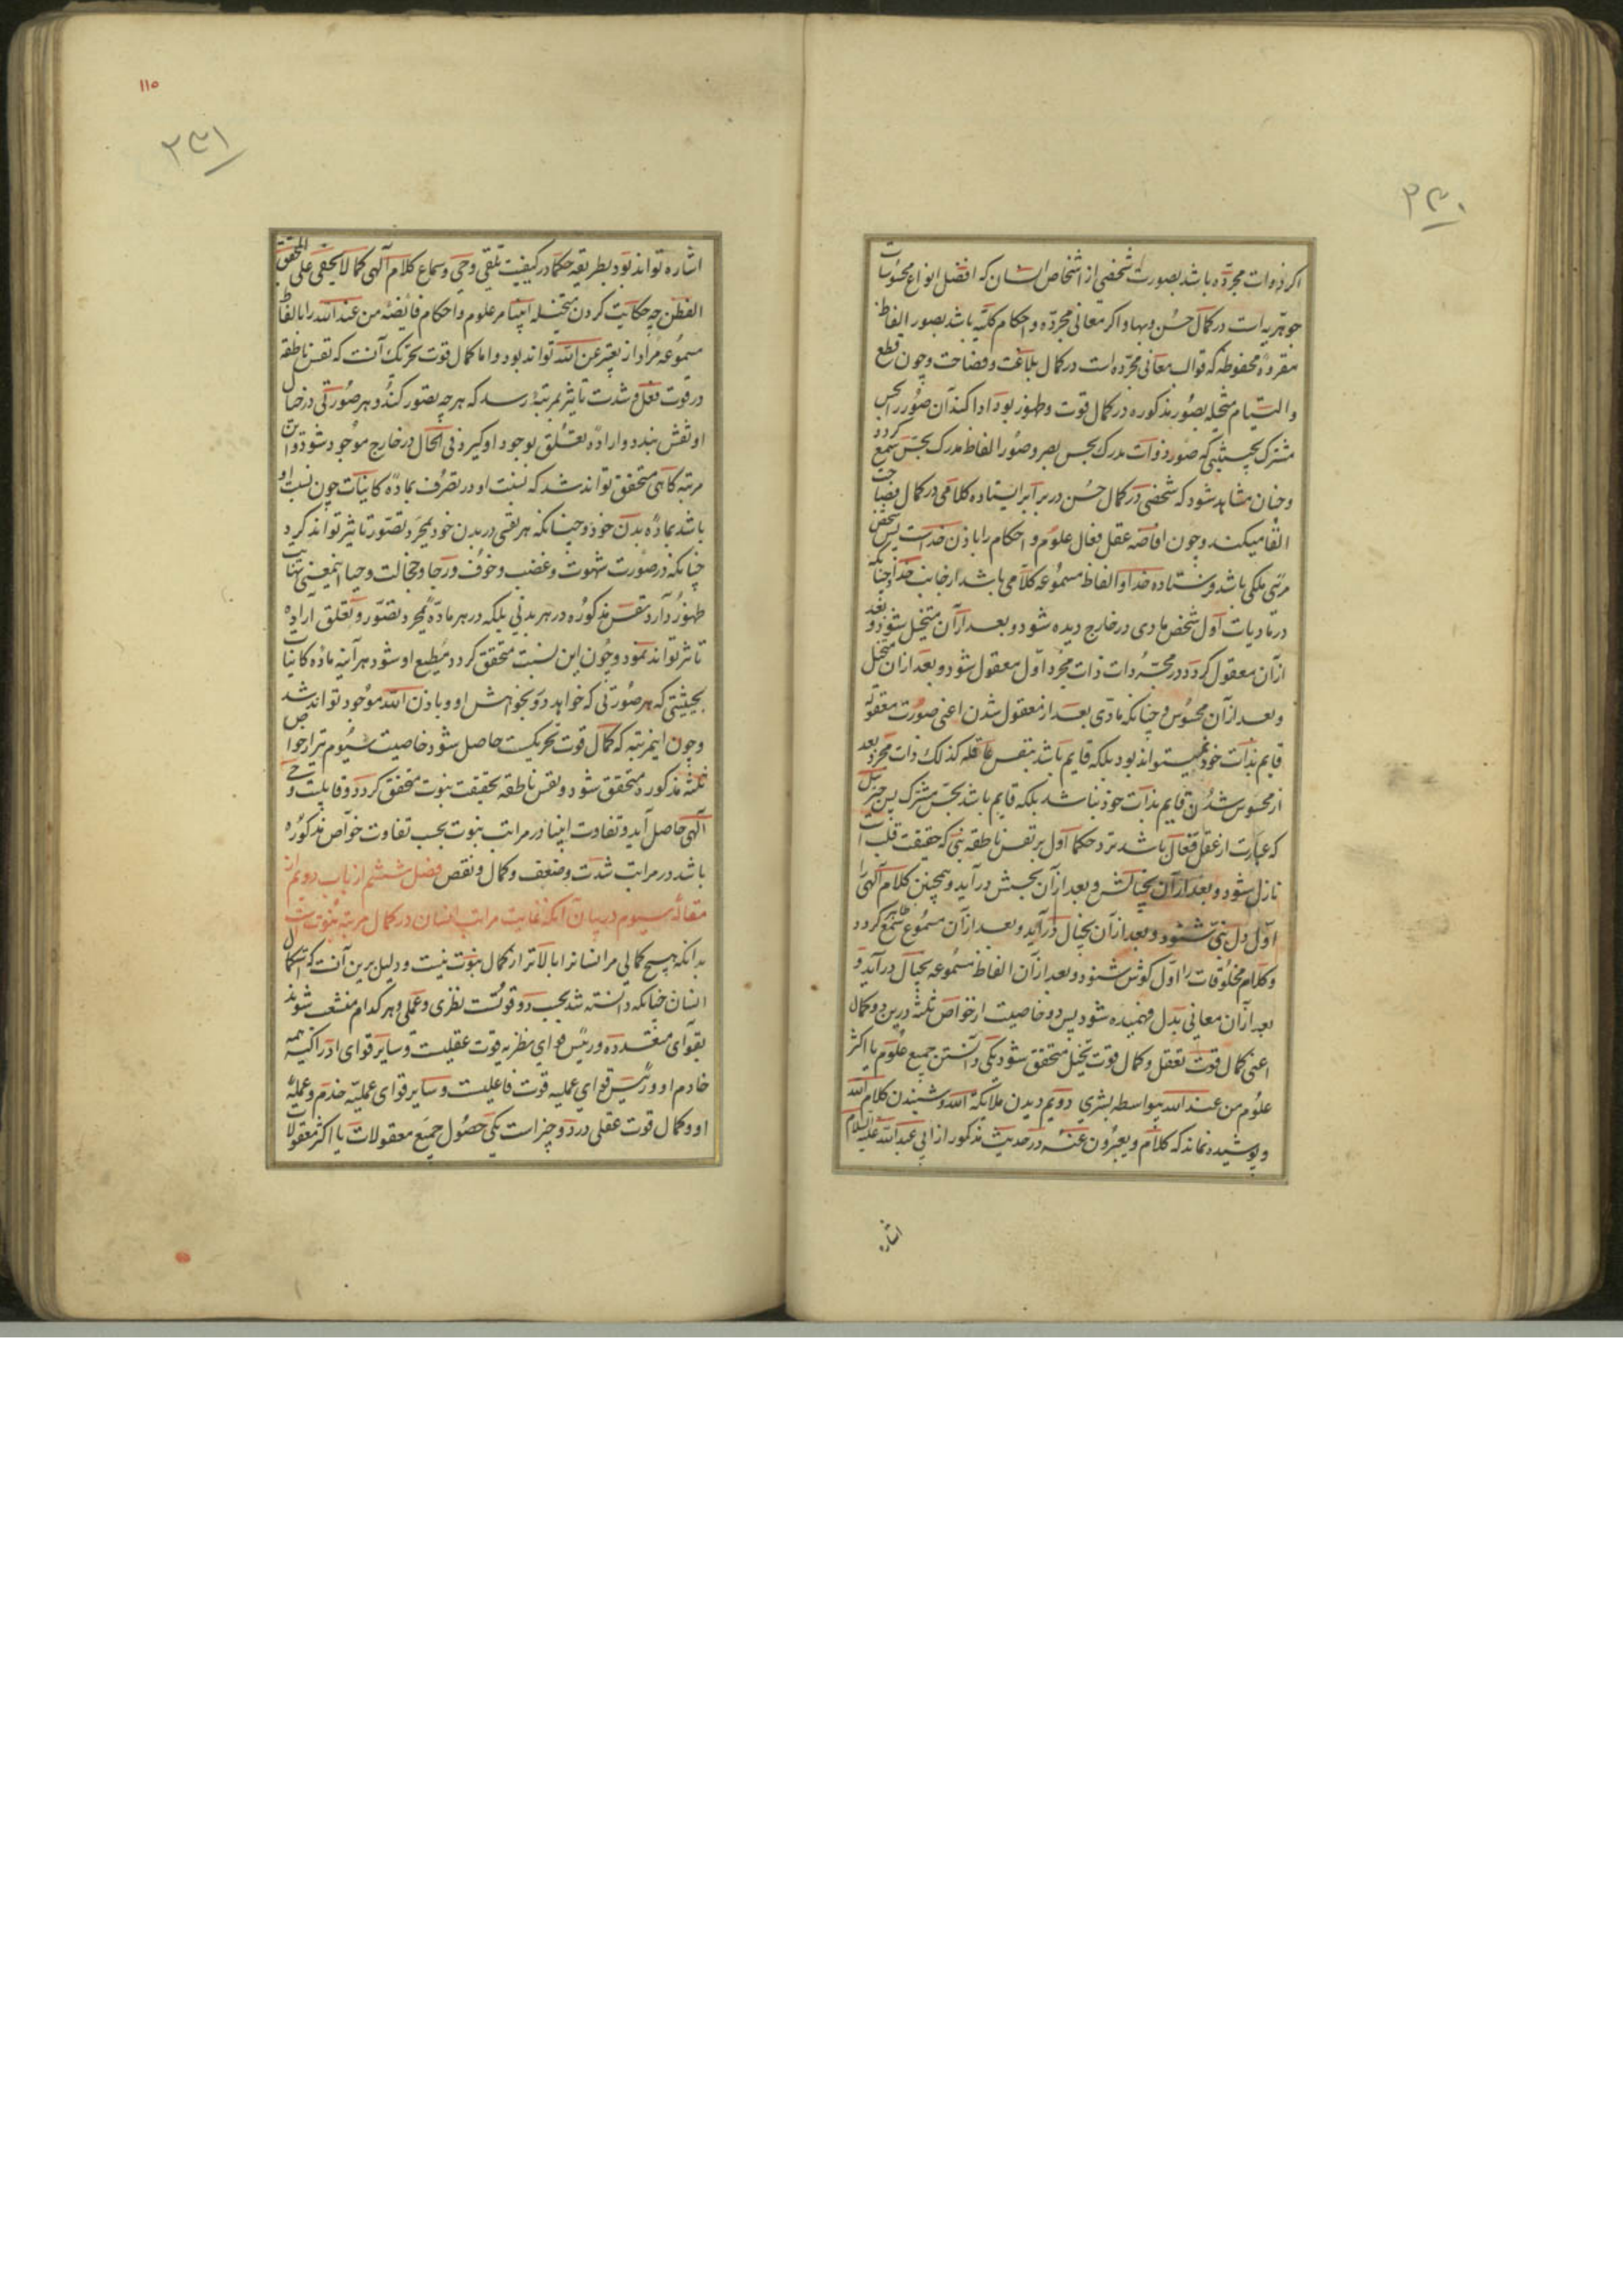 ۲۳۰
اکر ذوات مجرّده باشد بصورت شخصی از اشخاص انسان که افضل انواع محسوسات
جوهریه است در کمال حسن و بها و اکر معانی مجرّده و احکام کلیّه باشد بصور الفاظ
مفردهٔ محفوظه که قوالب معانی مجرّده است در کمال بلاغت و فصاحت و چون قطع
و التیام متخیله بصور مذکوره در کمال قوت و ظهور بود ادا کند آن صور را بحس
مشترک بحیثیتی که صور ذوات مدرک بحس بصر و صور الفاظ مدرک بحس سمع کردد
و چنان مشاهد شود که شخصی در کمال حسن در برابر ایستاده کلامی در کمال فصاحت
القا میکند و چون افاضه عقل فعال علوم و احکام را باذن خداست پس شخص
مرئی ملکی باشد فرستاده خدا و الفاظ مسموعه کلامی باشد از جانب خدا و چنانکه
در مادیات اول شخص مادی در خارج دیده شود و بعد از آن متخیل شود و بعد
از آن معقول کردد در مجردات ذات مجرد اول معقول شود و بعد از آن متخیل
و بعد از آن محسوس و چنانکه مادّی بعد از معقول شدن اعنی صورت معقوله
قایم بذات خود نمیتواند بود بلکه قایم باشد بنفس عاقله کذلک ذات مجرد بعد
از محسوس شدن قایم بذات خود نباشد بلکه قایم باشد بحس مشترک پس جبرئیل
که عبارت از عقل فعال باشد نزد حکما اول بر نفس ناطقه نبی که حقیقت قلب است
نازل شود و بعد از آن بخیالش و بعد از آن بحسش در آید و همچنین کلام آلهی را
اول دل نبی شنود و بعد از آن بخیال در آید و بعد از آن مسموع سمع ظاهر کردد
و کلام مخلوقات را اول کوش شنود و بعد از آن الفاظ مسموعه بخیال در آید و
بعد از آن معانی بدل فهمیده شود پس دو خاصیت از خواص ثلثه درین دو کمال
اعنی کمال قوت تعقل و کمال قوت تخیل متحقق شود یکی دانستن جمیع علوم یا اکثر
علوم من عند الله بیواسطه بشری دویم دیدن ملائکة الله و شنیدن کلام الله
و پوشیده نماند که کلام و یعبرون عنه در حدیث مذکور از ابی عبد الله علیه السلام
اشاره
۱۱۵
۲۳۱
اشاره تواند بود بطریقه حکما در کیفیت تلقی وحی و سماع کلام آلهی کما لا یخفی علی المحقق
الفطن چه حکایت کردن متخیله انبیا مر علوم و احکام فائضه من عند الله را بالفاظ
مسموعه مراد از یعبر عن الله تواند بود و اما کمال قوت تحریک آنست که نفس ناطقه
در قوت فعل و شدت تاثیر بمرتبهٔ رسد که هر چه تصور کند و هر صورتی در خیال
او نقش بندد و ارادهٔ تعلق بوجود او کیرد فی الحال در خارج موجود شود و این
مرتبه کاهی متحقق تواند شد که نسبت او در تصرف بمادّه کاینات چون نسبت او
باشد بمادّه بدن خود و چنانکه هر نفسی در بدن خود بمجرد تصور تاثیر تواند کرد
چنانکه در صورت شهوت و غضب و خوف و رجا و خجالت و حیا اینمعنی نهایت
ظهور دارد نفس مذکوره در هر بدنی بلکه در هر مادّه بمجرد تصور و تعلق اراده
تاثیر تواند نمود و چون این نسبت متحقق کردد مطیع او شود هر آینه ماده کاینات
بحیثیتی که هر صورتی که خواهد در و بخواهش او و باذن الله موجود تواند شد
و چون اینمرتبه که کمال قوت تحریکست حاصل شود خاصیت سیوم نیز از خواص
ثلثهٔ مذکوره متحقق شود و نفس ناطقه بحقیقت نبوت متحقق کردد و قابلیت وحی
آلهی حاصل آید و تفاوت انبیا در مراتب نبوت بحسب تفاوت خواص مذکوره
باشد در مراتب شدت و ضعف و کمال و نقص فصل ششم از باب دویم از
مقالهٔ سیوم در بیان آنکه غایت مراتب انسان در کمال مرتبه نبوتست
بدانکه هیچ کمالی مر انسانرا بالاتر از کمال نبوت نیست و دلیل برین آنست که استکمال
انسان چنانکه دانسته شد بحسب دو قوتست نظری و عملی و هر کدام منشعب شوند
بقوای متعدده و رئیس قوای نظریه قوت عقلیست و سایر قوای ادراکیه همه
خادم او و رئیس قوای عملیه قوت فاعلیست و سایر قوای عملیه خدم و عملهٔ
او و کمال قوت عقلی در دو چیز است یکی حصول جمیع معقولات یا اکثر معقولات